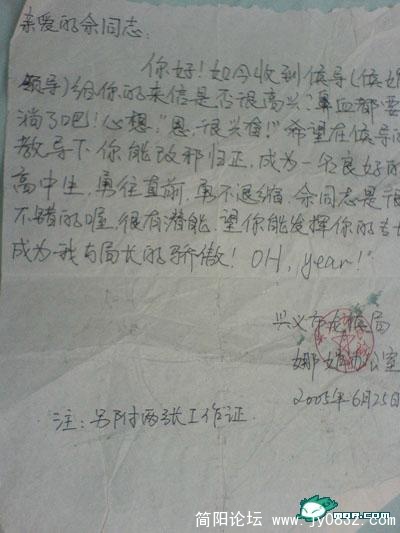 亲爱的余同志:
你好!如今收到侯导(侯
领导)给你的来信是否很高兴?鼻血都要
淌了吧!心想,"恩,很兴奋!"希望在侯导的
教导下你能改邪归正,成为一名良好的
高中生,勇往直前,勇不退缩,余同志是很
不错的喔,很有潜能,望你能发挥你的专长
成为我与局长的骄傲!OH, year!
兴义市 局
娜 办公室
2005年6月25日
注:另附两张工作证.
简阳论坛 www.jy0832.com
MOP.COM